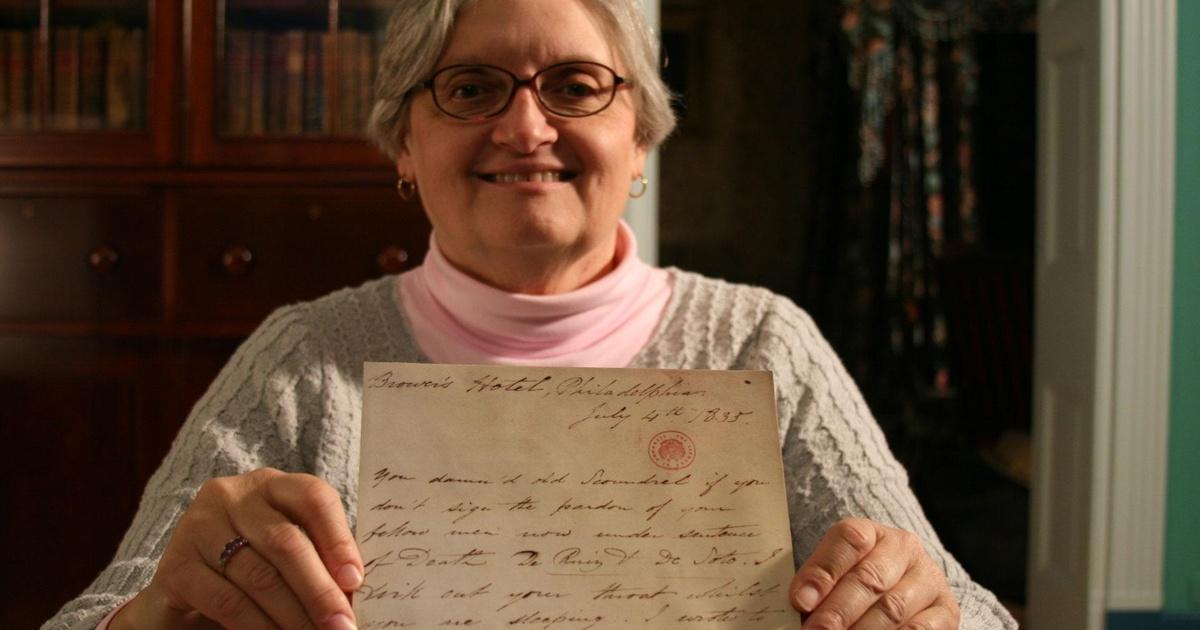 Brower's Hotel, Philadelphia.
July 4th 1835.
You damn'd old Scoundrel if you
don't sign the pardon of your
fellow men now under sentence
of Death De Ruiz & De Soto, I
will cut your throat whilst
you are sleeping. I wrote to